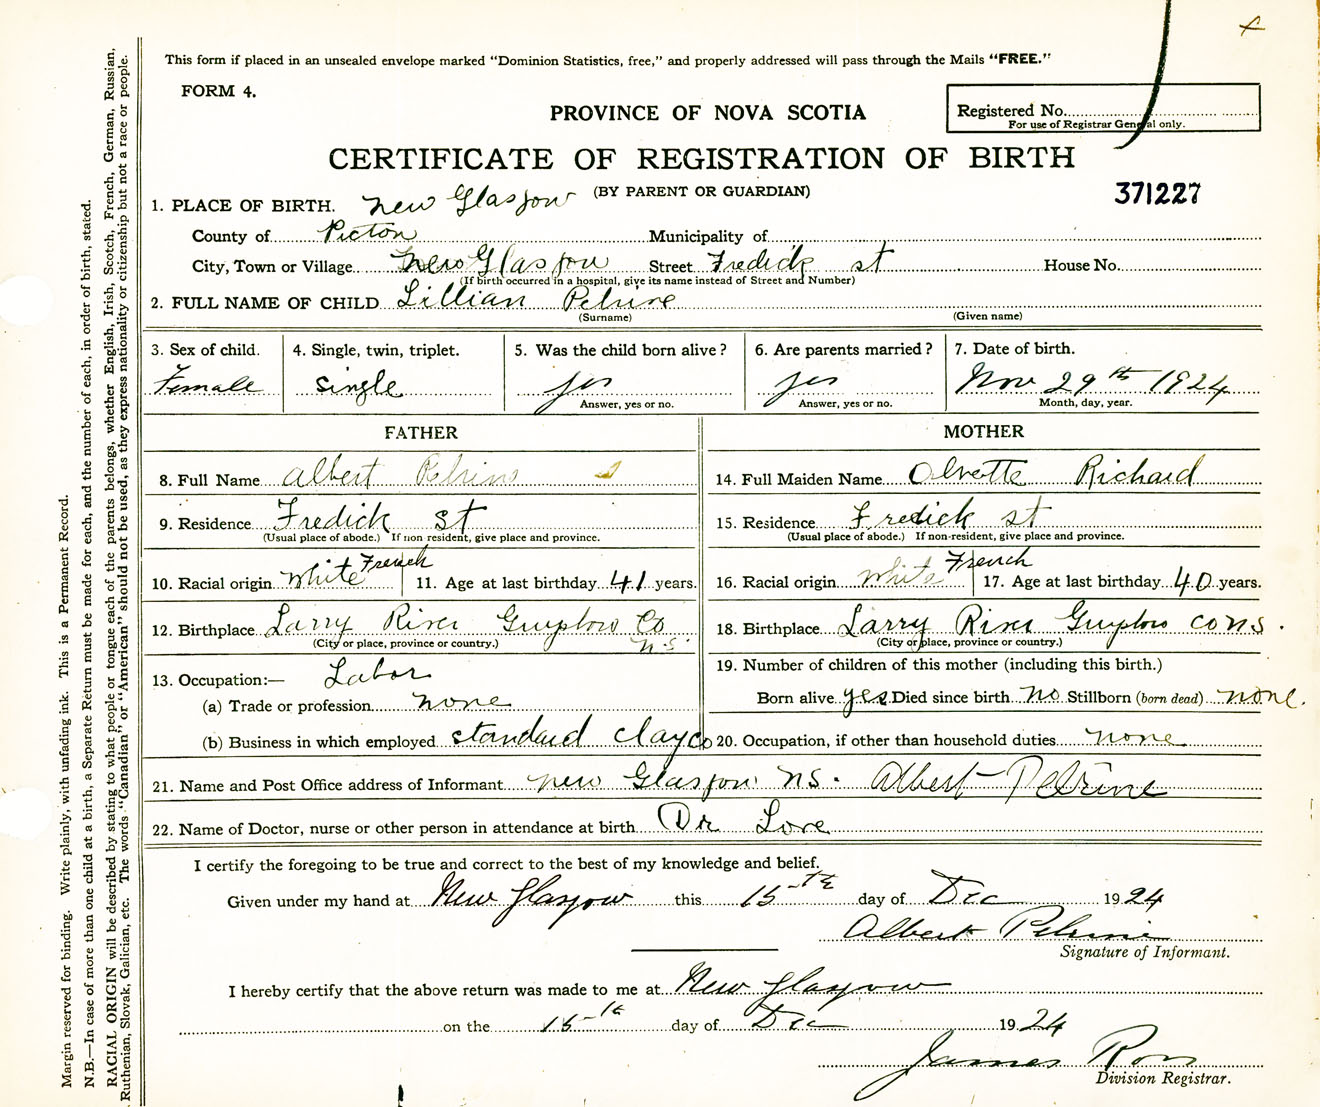 This form if placed in an unsealed envelope marked “Dominion Statistics, free,” and properly addressed will pass through the Mails “FREE.”
FORM 4.
PROVINCE OF NOVA SCOTIA
Registered No.
For use of Registrar General only.
CERTIFICATE OF REGISTRATION OF BIRTH
(BY PARENT OR GUARDIAN)
371227
1. PLACE OF BIRTH. New Glasgow
County of Pictou Municipality of
City, Town or Village New Glasgow Street Fredick st House No.
(If birth occurred in a hospital, give its name instead of Street and Number)
2. FULL NAME OF CHILD Lillian Pelrine
(Surname) (Given name)
3. Sex of child. 4. Single, twin, triplet. 5. Was the child born alive? 6. Are parents married? 7. Date of birth.
Female single yes yes Nov 29th 1924
Answer, yes or no. Answer, yes or no. Month, day, year.
FATHER MOTHER
8. Full Name Albert Pelrine 14. Full Maiden Name Olvette Richard
9. Residence Fredick st 15. Residence Fredick st
(Usual place of abode.) If non resident, give place and province. (Usual place of abode.) If non-resident, give place and province.
10. Racial origin White French 11. Age at last birthday 41 years. 16. Racial origin White French 17. Age at last birthday 40 years.
12. Birthplace Larry River Guysboro Co N.S. 18. Birthplace Larry River Guysboro Co N.S.
(City or place, province or country.) (City or place, province or country.)
13. Occupation:— Labor 19. Number of children of this mother (including this birth.)
(a) Trade or profession none Born alive yes Died since birth no Stillborn (born dead) none.
(b) Business in which employed standard clay co 20. Occupation, if other than household duties none
21. Name and Post Office address of Informant New Glasgow NS. Albert Pelrine
22. Name of Doctor, nurse or other person in attendance at birth Dr Love
I certify the foregoing to be true and correct to the best of my knowledge and belief.
Given under my hand at New Glasgow this 15th day of Dec 1924
Albert Pelrine
Signature of Informant.
I hereby certify that the above return was made to me at New Glasgow
on the 15th day of Dec 1924
James Ross
Division Registrar.
Margin reserved for binding. Write plainly, with unfading ink. This is a Permanent Record.
N.B.—In case of more than one child at a birth, a Separate Return must be made for each, and the number of each, in order of birth, stated.
RACIAL ORIGIN will be described by stating to what people or tongue each of the parents belongs, whether English, Irish, Scotch, French, German, Russian,
Ruthenian, Slovak, Galician, etc. The words “Canadian” or “American” should not be used, as they express nationality or citizenship but not a race or people.